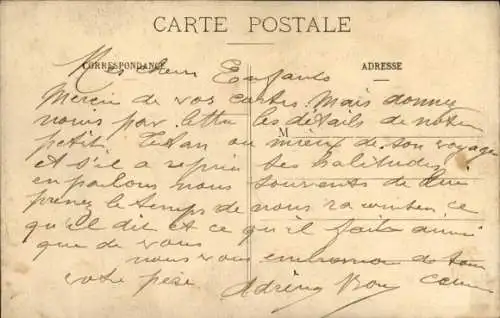 CARTE POSTALE
CORRESPONDANCE
ADRESSE
Mes chers Enfants
Merci de vos cartes. Mais donnez
nous par lettre les détails de notre
M
petit ou mieux de son voyage
et s'il a repris ses habitudes
en parlons nous souvents de lui
prenez le temps de nous raconter ce
qu'il dit et ce qu'il fait ainsi
que de vous
nous vous embrassons de tout
votre père Adrien coeur